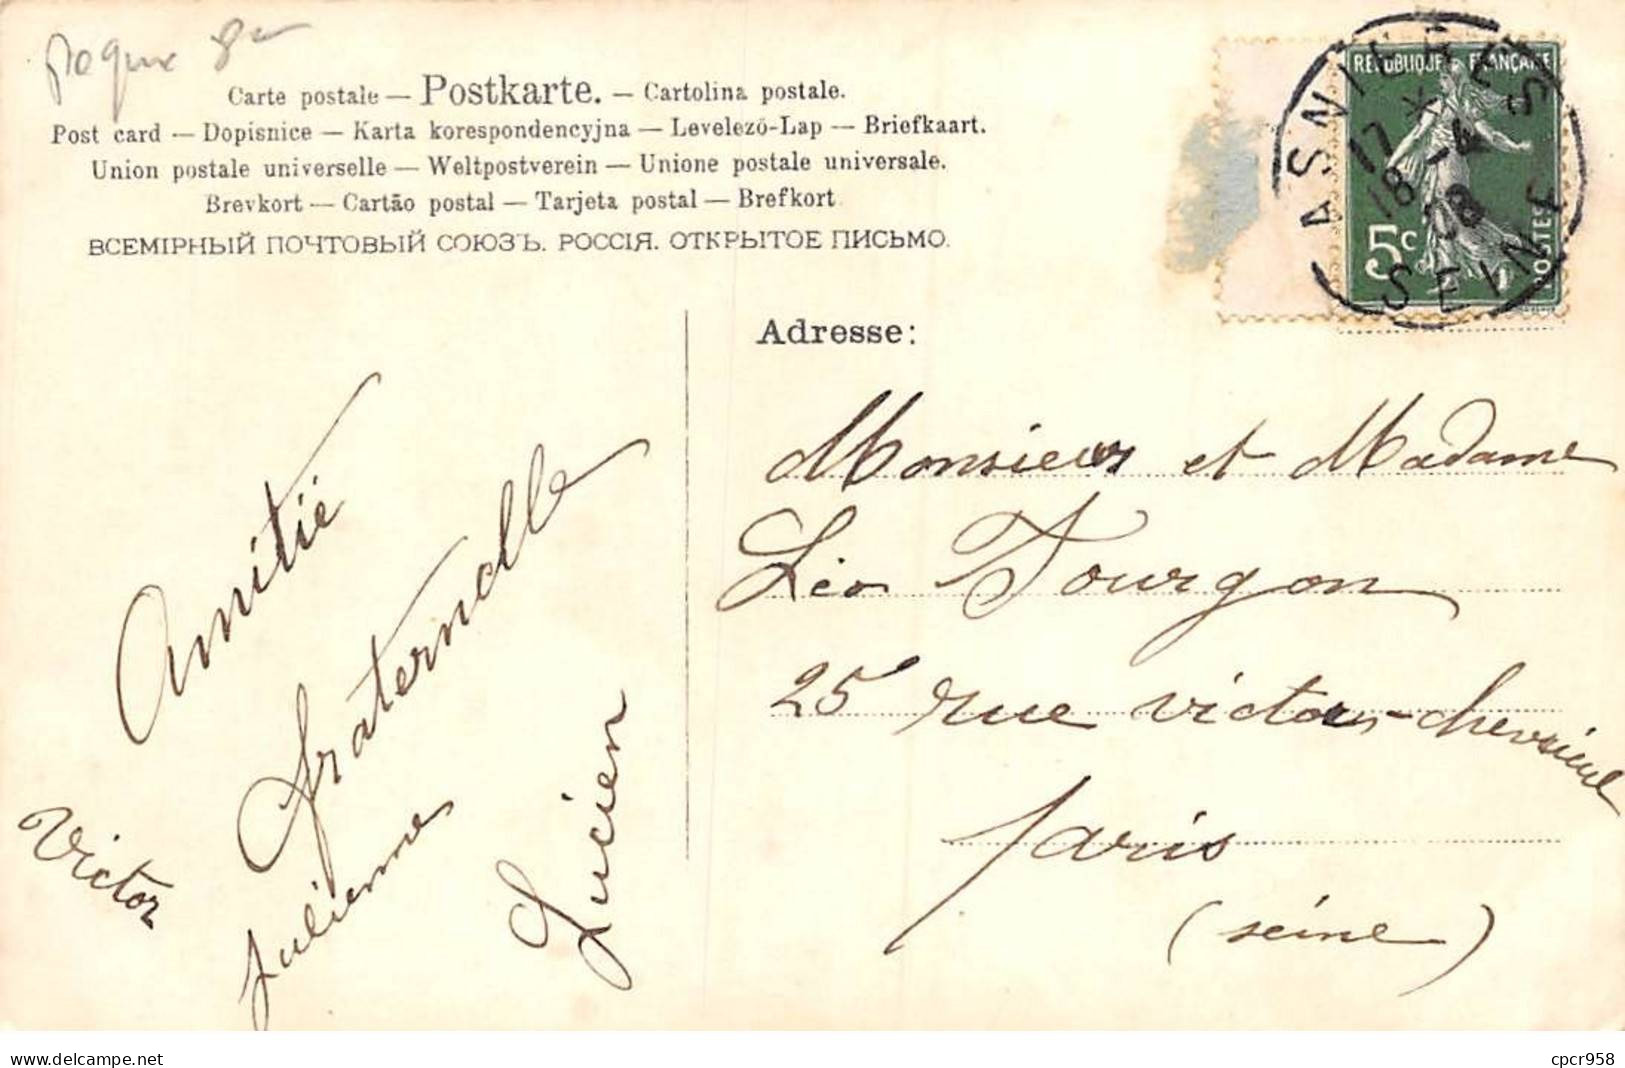 Carte postale — Postkarte. — Cartolina postale.
Post card — Dopisnice — Karta korespondencyjna — Levelezö-Lap — Briefkaart.
Union postale universelle — Weltpostverein — Unione postale universale.
Brevkort — Cartão postal — Tarjeta postal — Brefkort
ВСЕМІРНЫЙ ПОЧТОВЫЙ СОЮЗЪ. РОССІЯ. ОТКРЫТОЕ ПИСЬМО.
REPUBLIQUE FRANÇAISE
5c
POSTES
ASNIERES
17
18 - 4
08
SEINE
Adresse:
Monsieur et Madame
Léo Fourgon
25 rue victor-chevreuil
Paris
(seine)
Amitié
fraternelle
Victor
Julienne
Lucien
delcampe.net
cpcr958